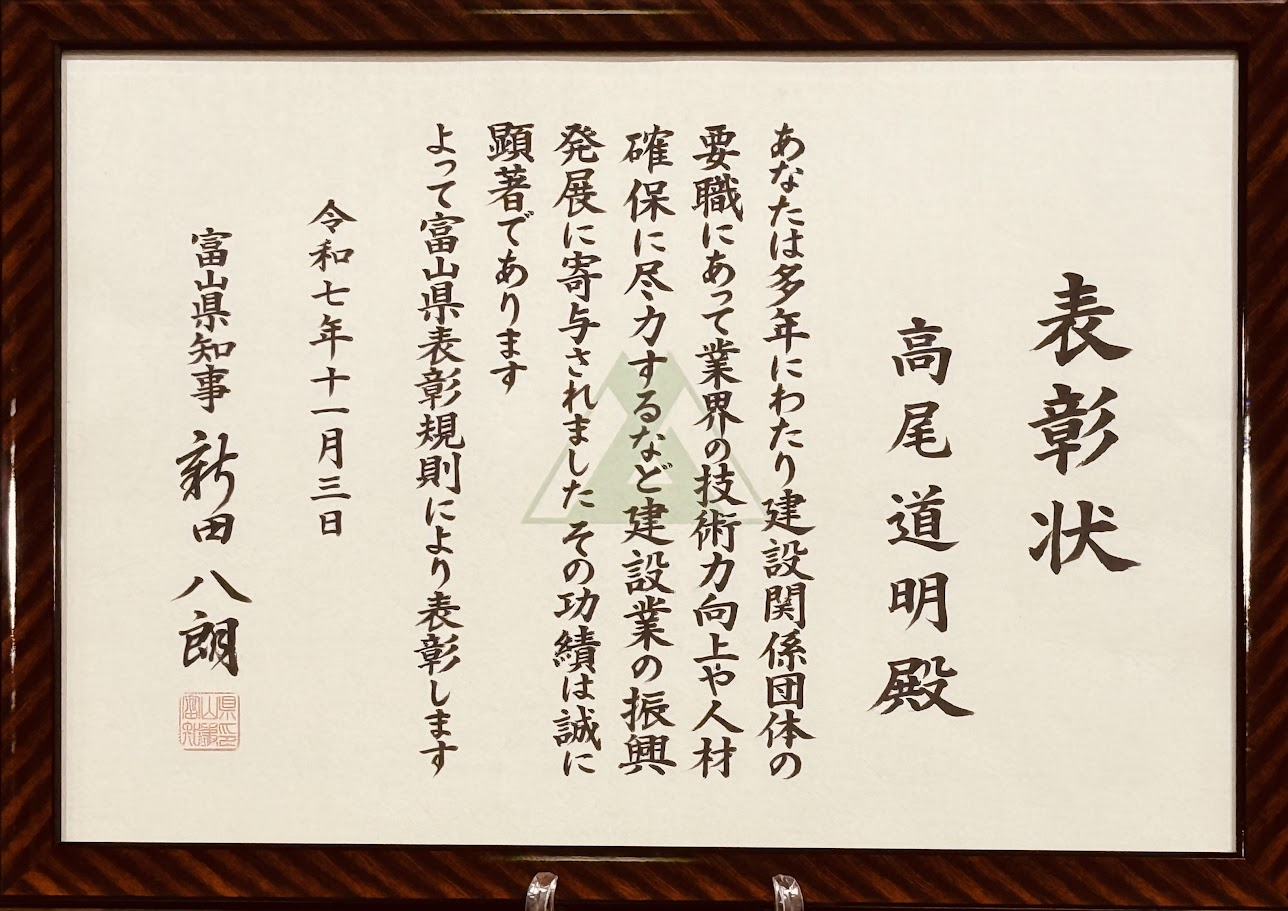 表彰状
高尾道明殿
あなたは多年にわたり建設関係団体の
要職にあって業界の技術力向上や人材
確保に尽力するなど建設業の振興
発展に寄与されました その功績は誠に
顕著であります
よって富山県表彰規則により表彰します
令和七年十一月三日
富山県知事 新田八朗